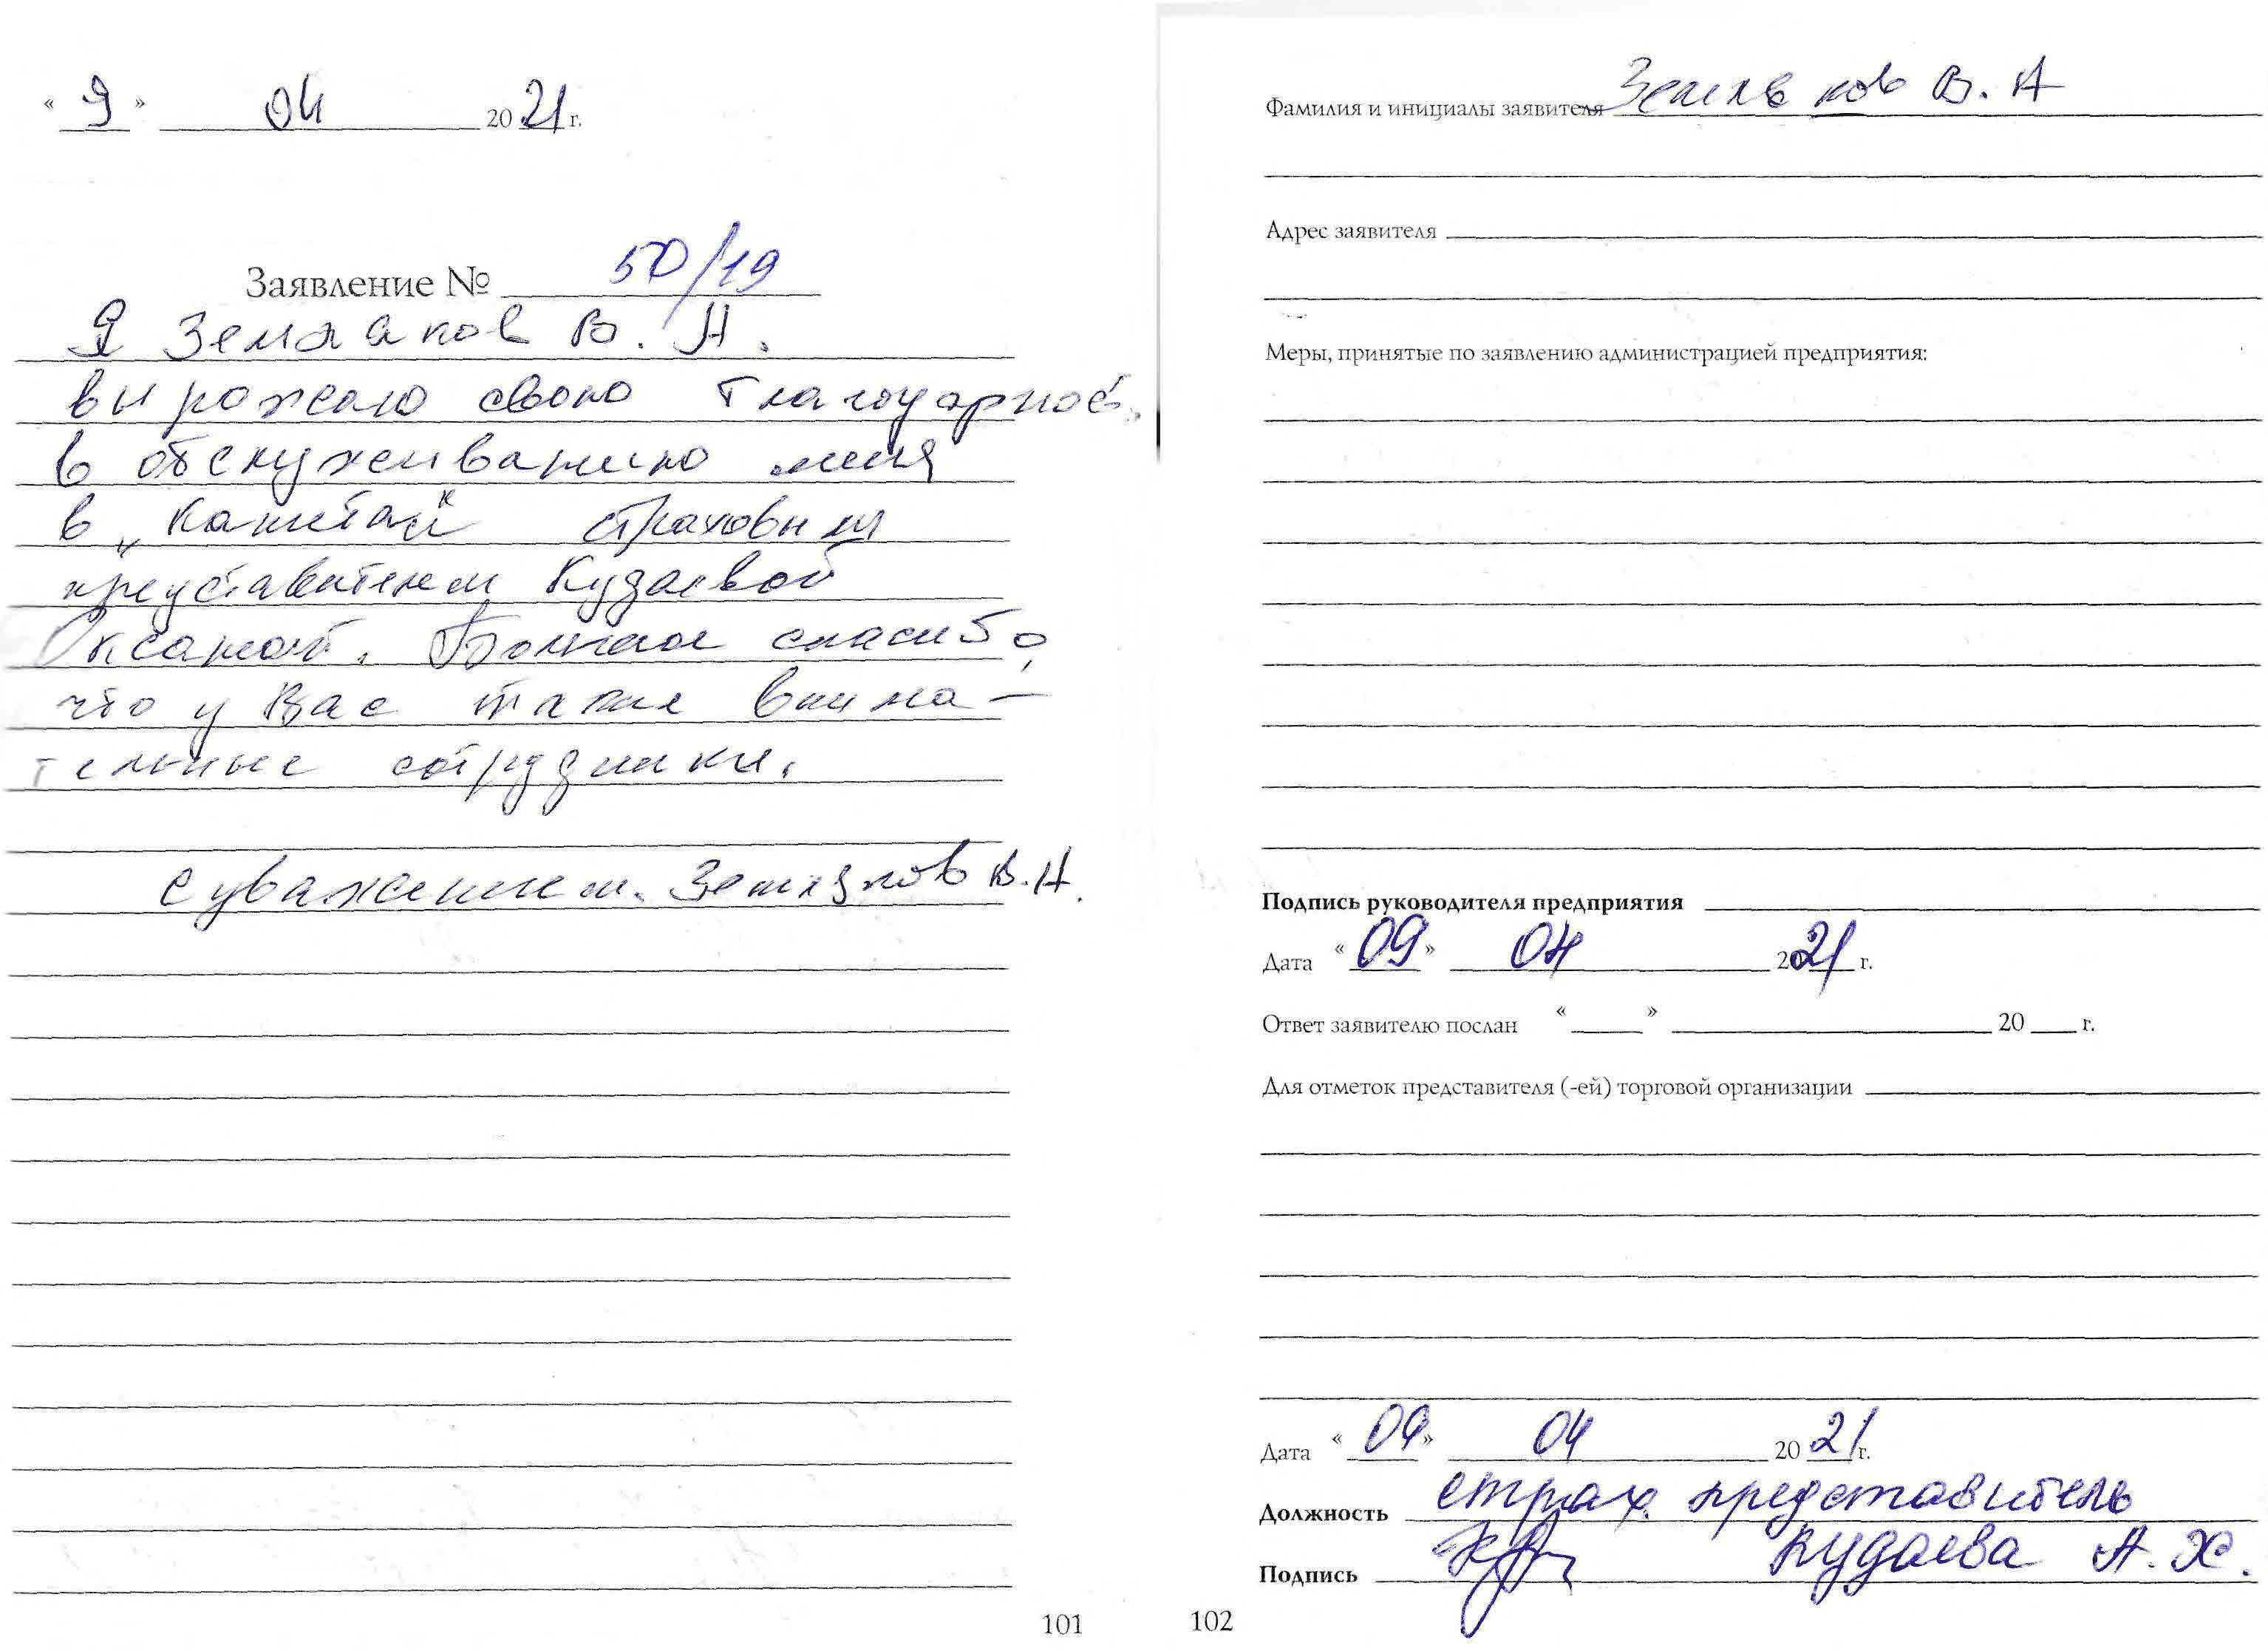 « 9 » 04 2021 г.
Заявление № 50/19
Я Земляков В. А.
вырожаю свою благодарность
в обслуживанию меня
в „Капитал" страховым
представителем Кудаевой
Оксаной. Большое спасибо,
что у Вас такие внима-
тельные сотрудники.
с уважением. Земляков В.А.
101
Фамилия и инициалы заявителя Земляков В. А
Адрес заявителя
Меры, принятые по заявлению администрацией предприятия:
Подпись руководителя предприятия
Дата « 09 » 04 2021 г.
Ответ заявителю послан « » 20 г.
Для отметок представителя (-ей) торговой организации
Дата « 09 » 04 20 21 г.
Должность страх. представитель
Подпись Кудаева А. Х.
102